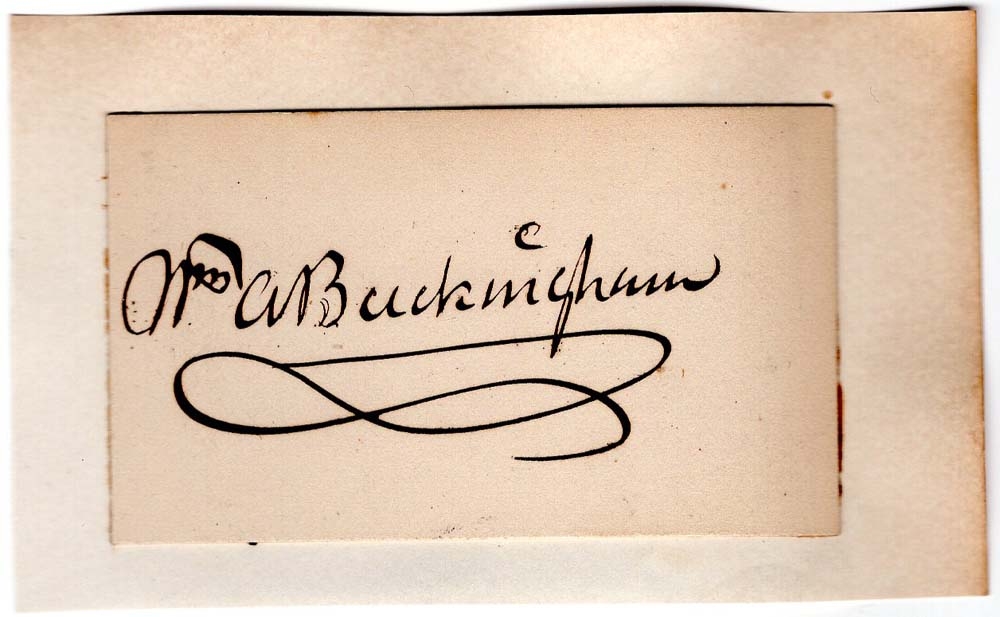 Wm A Buckingham